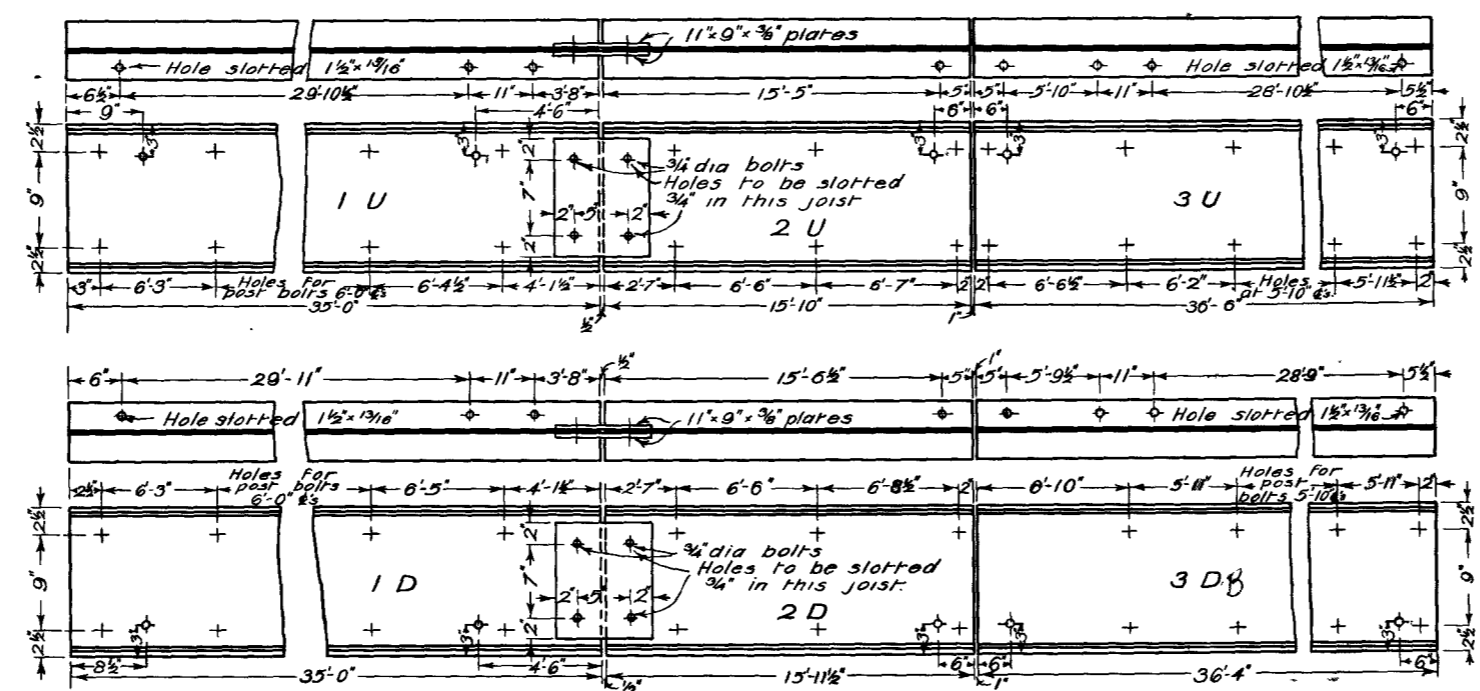 11"×9"×⅜" plates
Hole slotted 1½"×13/16"
Hole slotted 1½"×13/16"
6½" 29'-10½" 11" 3'-8" 15'-5" 5" 5" 5'-10" 11" 28'-10½" 5½"
9" 4'-6" 6" 6" 6"
2½" 3" 3" 2" 3" 3" 3" 2½"
¾ dia bolts
Holes to be slotted
¾" in this joist
9" 1 U 7" 2 U 3 U 9"
2" 5" 2"
2½" 2" 2½"
3" 6'-3" Holes for post bolts 6'-0" ¢s 6'-4½" 4'-1½" 2'-7" 6'-6" 6'-7" 2" 2" 6'-6½" 6'-2" Holes at 5'-10 ¢s. 5'-11½" 2"
35'-0" ½" 15'-10" 1" 36'-6"
6" 29'-11" 11" 3'-8" ½" 15'-6½" 5" 1" 5" 5'-9½" 11" 28'9" 5½"
Hole slotted 1½"×13/16"
11"×9"×⅜" plates
Hole slotted 1½"×13/16"
2½" 6'-3" Holes for post bolts 6'-0" ¢s 6'-5" 4'-1½" 2'-7" 6'-6" 6'-8½" 2" 6'-10" 5'-11" Holes for post bolts 5'-10 ¢s 5'-11" 2"
2½" 2" 2½"
¾ dia bolts
Holes to be slotted
¾" in this joist.
9" 1 D 7" 2 D 3 D 9"
2" 5" 2"
2½" 3" 3" 2" 3" 3" 3" 2½"
8½" 4'-6" 6" 6" 6"
35'-0" ½" 15'-11½" 1" 36'-4"